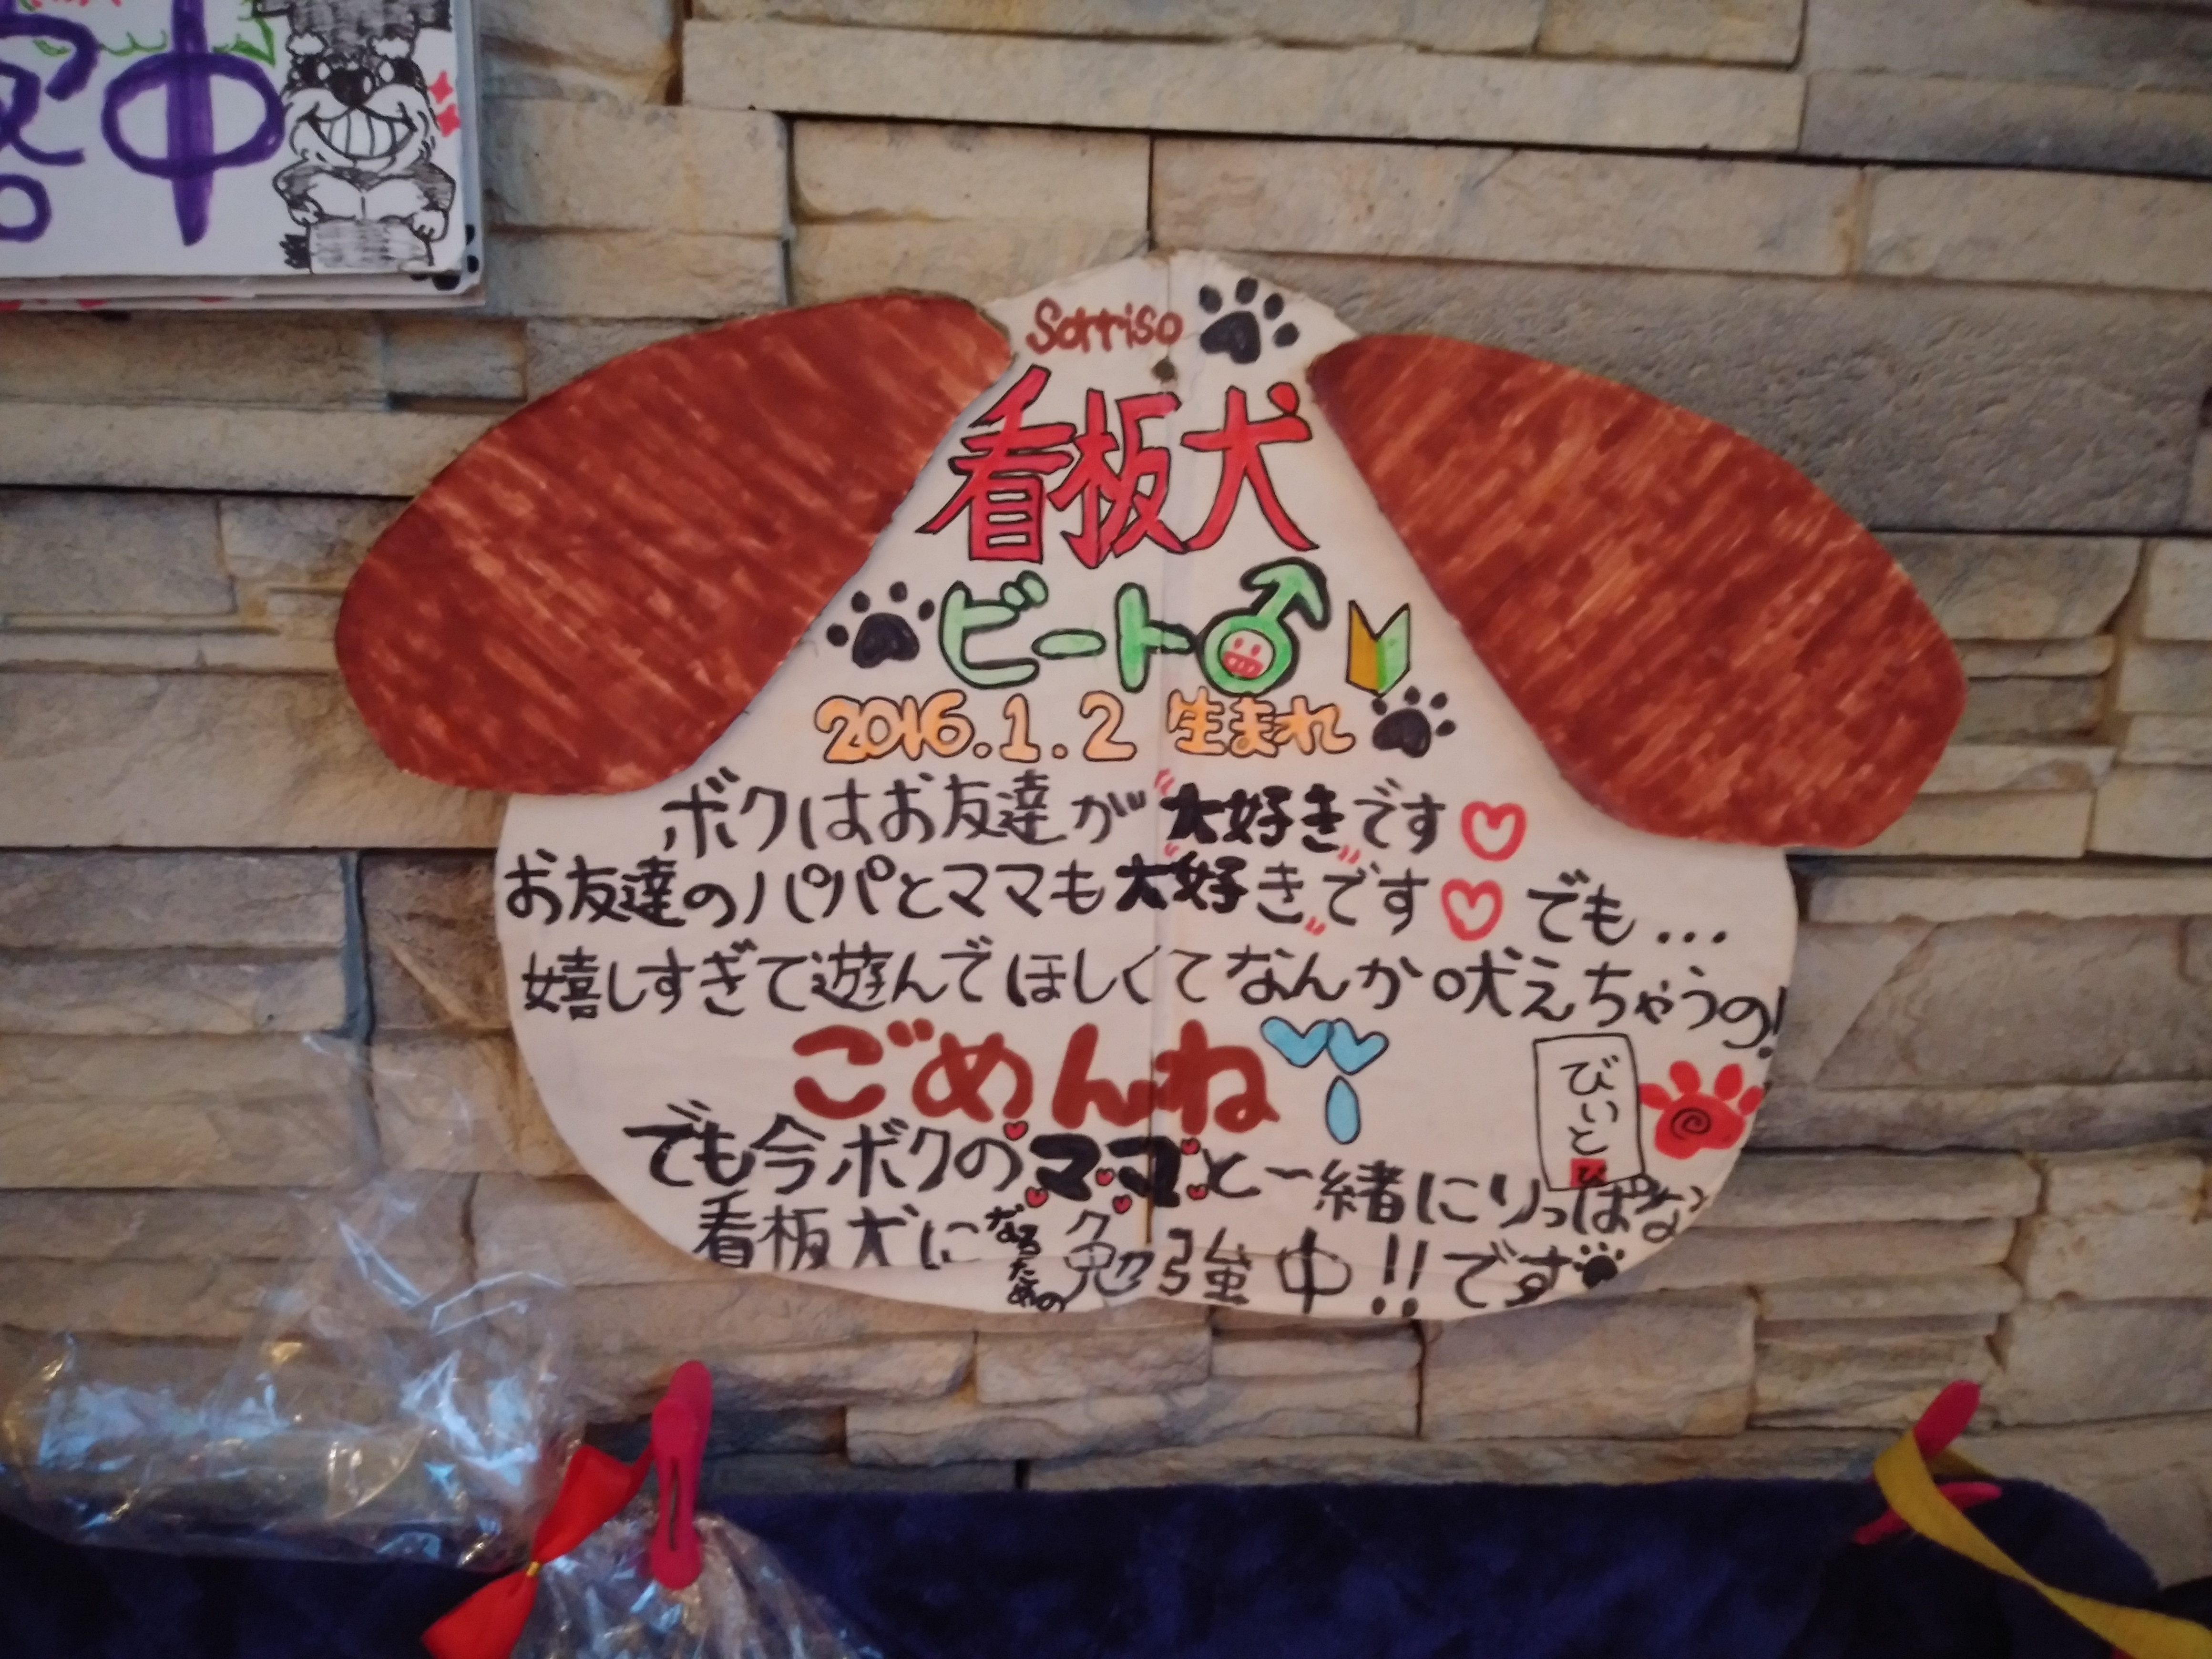 中
Sorriso
看板犬
ビート♂
2016.1.2 生まれ
ボクはお友達が"大好き"です♡
お友達のパパとママも"大好き"です♡ でも...
嬉しすぎて遊んでほしくてなんか吠えちゃうの!
ごめんね
びぃと
でも今ボクのママと一緒にりっぱな
看板犬になるための勉強中!!です